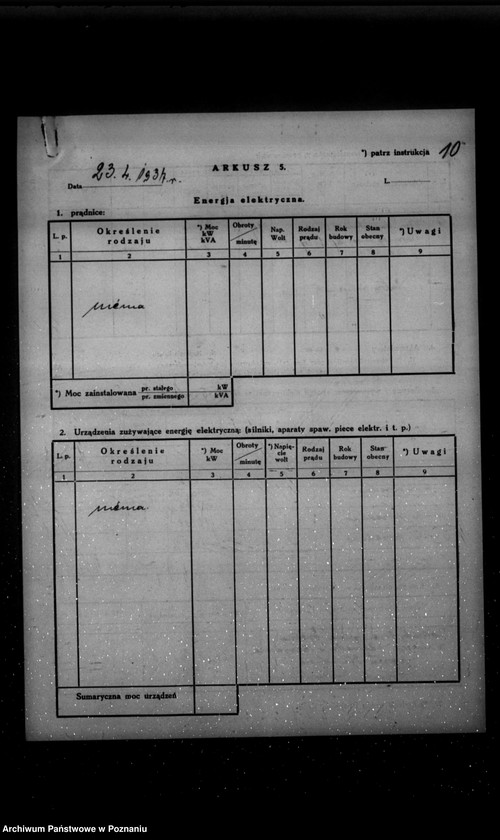 *) patrz instrukcja 10
ARKUSZ 5.
Data 23.4.1934 r. L.
Energja elektryczna.
1. prądnice:
L. p. Określenie rodzaju *) Moc kW kVA Obroty minutę Nap. Wolt Rodzaj prądu Rok budowy Stan obecny *) Uwagi
1 2 3 4 5 6 7 8 9
niema
*) Moc zainstalowana pr. stałego kW
pr. zmiennego kVA
2. Urządzenia zużywające energię elektryczną: (silniki, aparaty spaw. piece elektr. i t. p.)
L. p. Określenie rodzaju *) Moc kW Obroty minutę *) Napięcie wolt Rodzaj prądu Rok budowy Stan obecny *) Uwagi
1 2 3 4 5 6 7 8 9
niema
Sumaryczna moc urządzeń
Archiwum Państwowe w Poznaniu